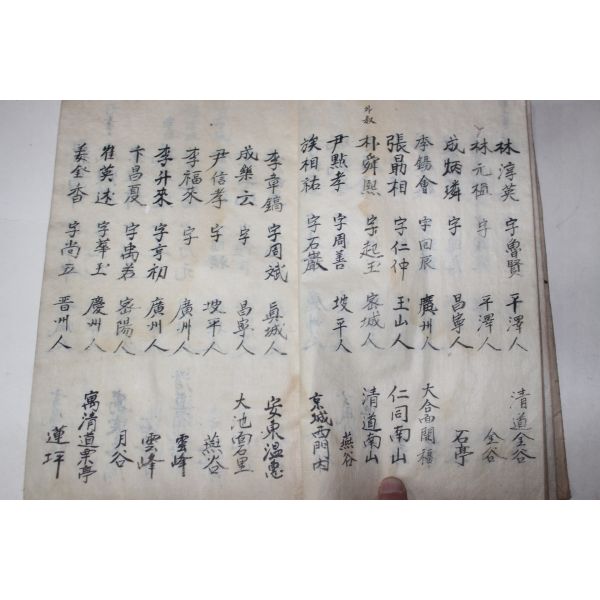 林淳英 字魯賢 平澤人 清道金谷
林元植 字 平澤人 金谷
成炳璘 字 昌寧人 石亭
李錫會 字回辰 廣州人 大合面關
張勗相 字仁仲 玉山人 仁同南山
外叔
朴舜熙 字起玉 密城人 清道南山
尹點孝 字周善 坡平人 燕谷
族相祐 字石巖 京城西門內
李章鎬 字周斌 眞城人 安東溫惠
成樂云 字 昌寧人 大池面石里
尹信孝 字 坡平人 燕谷
李福來 字 廣州人 雲峰
李升來 字亨初 廣州人 雲峰
卞昌夏 字禹若 密陽人 月谷
崔英述 字華玉 慶州人 寓清道栗亭
姜全杳 字尚立 晋州人 蓮坪